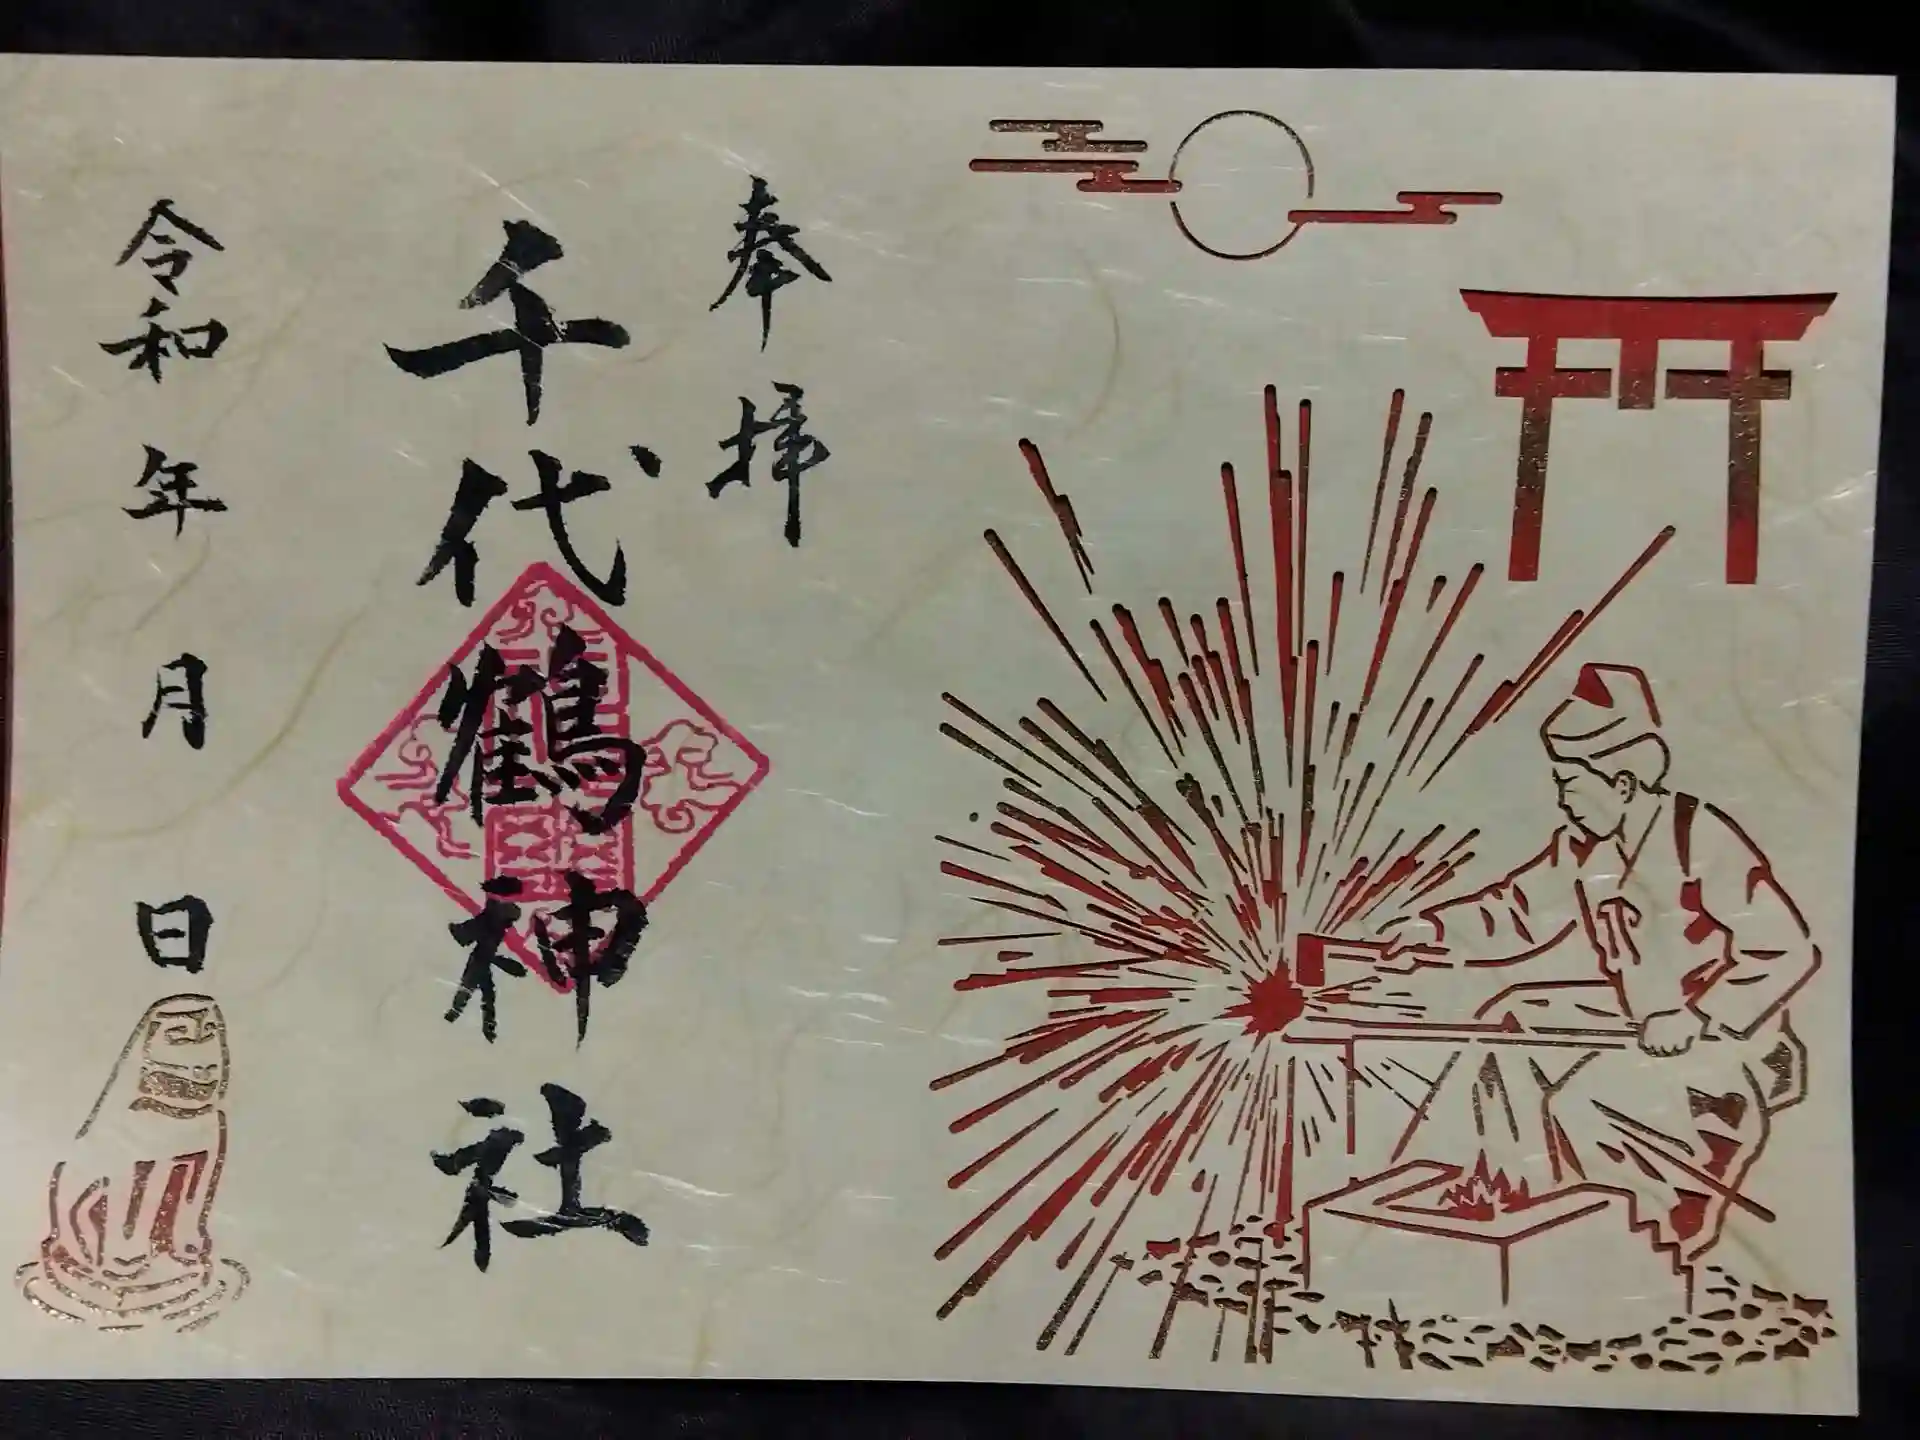 奉拝
千代鶴神社
令和年月日